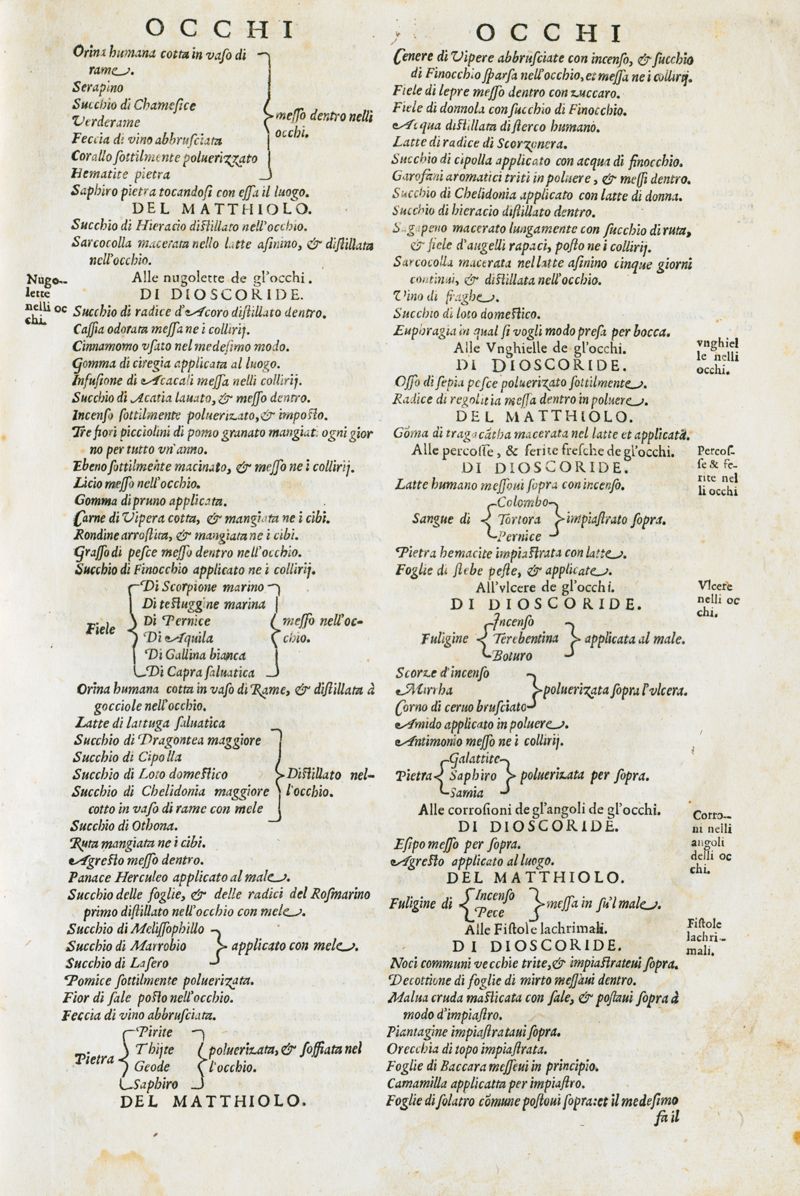 OCCHI
Orina humana cotta in vaſo di
rame.
Serapino
Succhio di Chameſice
Verderame
Feccia di vino abbruſciata
Corallo ſottilmente poluerizzato
Hematite pietra
meſſo dentro nelli
occhi.
Saphiro pietra tocandoſi con eſſa il luogo.
DEL MATTHIOLO.
Succhio di Hieracio diſtillato nell'occhio.
Sarcocolla macerata nello latte aſinino, & diſtillata
nell'occhio.
Nugo-
lette
nelli oc
chi.
Alle nugolette de gl'occhi.
DI DIOSCORIDE.
Succhio di radice d'Acoro diſtillato dentro.
Caſſia odorata meſſa ne i collirij.
Cinnamomo vſato nel medeſimo modo.
Gomma di ciregia applicata al luogo.
Infuſione di Acacali meſſa nelli collirij.
Succhio di Acatia lauato, & meſſo dentro.
Incenſo ſottilmente poluerizato, & impoſto.
Tre fiori picciolini di pomo granato mangiati ogni gior
no per tutto vn'anno.
Ebeno ſottilmente macinato, & meſſo ne i collirij.
Licio meſſo nell'occhio.
Gomma di pruno applicata.
Carne di Vipera cotta, & mangiata ne i cibi.
Rondine arroſtita, & mangiata ne i cibi.
Graſſo di peſce meſſo dentro nell'occhio.
Succhio di Finocchio applicato ne i collirij.
Fiele
Di Scorpione marino
Di teſtuggine marina
Di Pernice
Di Aquila
Di Gallina bianca
Di Capra ſaluatica
meſſo nell'oc-
chio.
Orina humana cotta in vaſo di Rame, & diſtillata à
gocciole nell'occhio.
Latte di lattuga ſaluatica
Succhio di Dragontea maggiore
Succhio di Cipolla
Succhio di Loto domeſtico
Succhio di Chelidonia maggiore
cotto in vaſo di rame con mele
Succhio di Othona.
Diſtillato nel-
l'occhio.
Ruta mangiata ne i cibi.
Agreſto meſſo dentro.
Panace Herculeo applicato al male.
Succhio delle foglie, & delle radici del Roſmarino
primo diſtillato nell'occhio con mele.
Succhio di Meliſſophillo
Succhio di Marrobio
Succhio di Laſero
applicato con mele.
Pomice ſottilmente poluerizata.
Fior di ſale poſto nell'occhio.
Feccia di vino abbruſciata.
Pietra
Pirite
Thijte
Geode
Saphiro
poluerizata, & ſoffiata nel
l'occhio.
DEL MATTHIOLO.
OCCHI
Cenere di Vipere abbruſciate con incenſo, & ſucchio
di Finocchio ſparſa nell'occhio, et meſſa ne i collirij.
Fiele di lepre meſſo dentro con zuccaro.
Fiele di donnola con ſucchio di Finocchio.
Acqua diſtillata di ſterco humano.
Latte di radice di Scorzonera.
Succhio di cipolla applicato con acqua di finocchio.
Garofani aromatici triti in poluere, & meſſi dentro.
Succhio di Chelidonia applicato con latte di donna.
Succhio di hieracio diſtillato dentro.
Sagapeno macerato lungamente con ſucchio di ruta,
& fiele d'augelli rapaci, poſto ne i collirij.
Sarcocolla macerata nel latte aſinino cinque giorni
continui, & diſtillata nell'occhio.
Vino di fraghe.
Succhio di loto domeſtico.
Euphragia in qual ſi vogli modo preſa per bocca.
Alle Vnghielle de gl'occhi.
vnghiel
le nelli
occhi.
DI DIOSCORIDE.
Oſſo di ſepia peſce poluerizato ſottilmente.
Radice di regolitia meſſa dentro in poluere.
DEL MATTHIOLO.
Gōma di tragacātha macerata nel latte et applicata.
Alle percoſſe, & ferite freſche de gl'occhi.
Percoſ-
ſe & fe-
rite nel
li occhi
DI DIOSCORIDE.
Latte humano meſſoui ſopra con incenſo.
Sangue di
Colombo
Tortora
Pernice
impiaſtrato ſopra.
Pietra hemacite impiaſtrata con latte.
Foglie di ſtebe peſte, & applicate.
All'vlcere de gl'occhi.
Vlcere
nelli oc
chi.
DI DIOSCORIDE.
Fuligine
Incenſo
Terebentina
Boturo
applicata al male.
Scorze d'incenſo
Mirrha
Corno di ceruo bruſciato
poluerizata ſopra l'vlcera.
Amido applicato in poluere.
Antimonio meſſo ne i collirij.
Pietra
Galattite
Saphiro
Samia
poluerizata per ſopra.
Alle corroſioni de gl'angoli de gl'occhi.
Corro-
ni nelli
angoli
delli oc
chi.
DI DIOSCORIDE.
Eſipo meſſo per ſopra.
Agreſto applicato al luogo.
DEL MATTHIOLO.
Fuligine di
Incenſo
Pece
meſſa in ſu'l male.
Alle Fiſtole lachrimali.
Fiſtole
lachri-
mali.
DI DIOSCORIDE.
Noci communi vecchie trite, & impiaſtrateui ſopra.
Decottione di foglie di mirto meſſaui dentro.
Malua cruda maſticata con ſale, & poſtaui ſopra à
modo d'impiaſtro.
Piantagine impiaſtrataui ſopra.
Orecchia di topo impiaſtrata.
Foglie di Baccara meſſeui in principio.
Camamilla applicatta per impiaſtro.
Foglie di ſolatro cōmune poſtoui ſopra: et il medeſimo
fa il